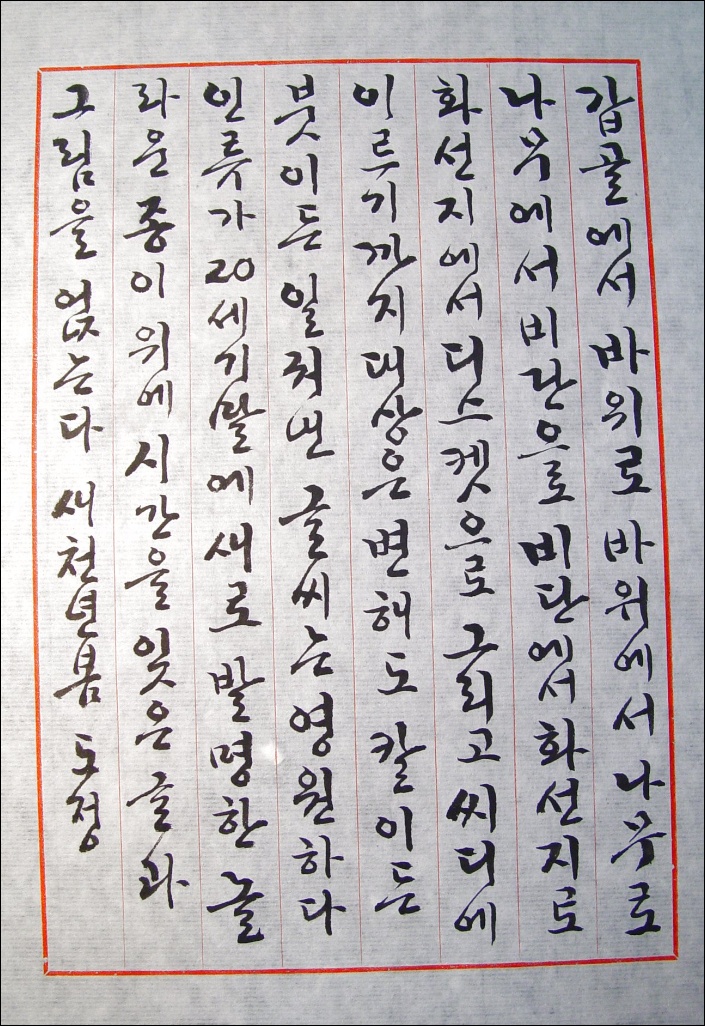 갑골에서 바위로 바위에서 나무로
나무에서 비단으로 비단에서 화선지로
화선지에서 디스켓으로 그리고 씨디에
이르기까지 대상은 변해도 칼이든
붓이든 일워낸 글씨는 영원하다
인류가 20세기말에 새로 발명한 글
라운 종이 위에 시간을 잊은 글과
그림을 얹는다 새천년봄 도정